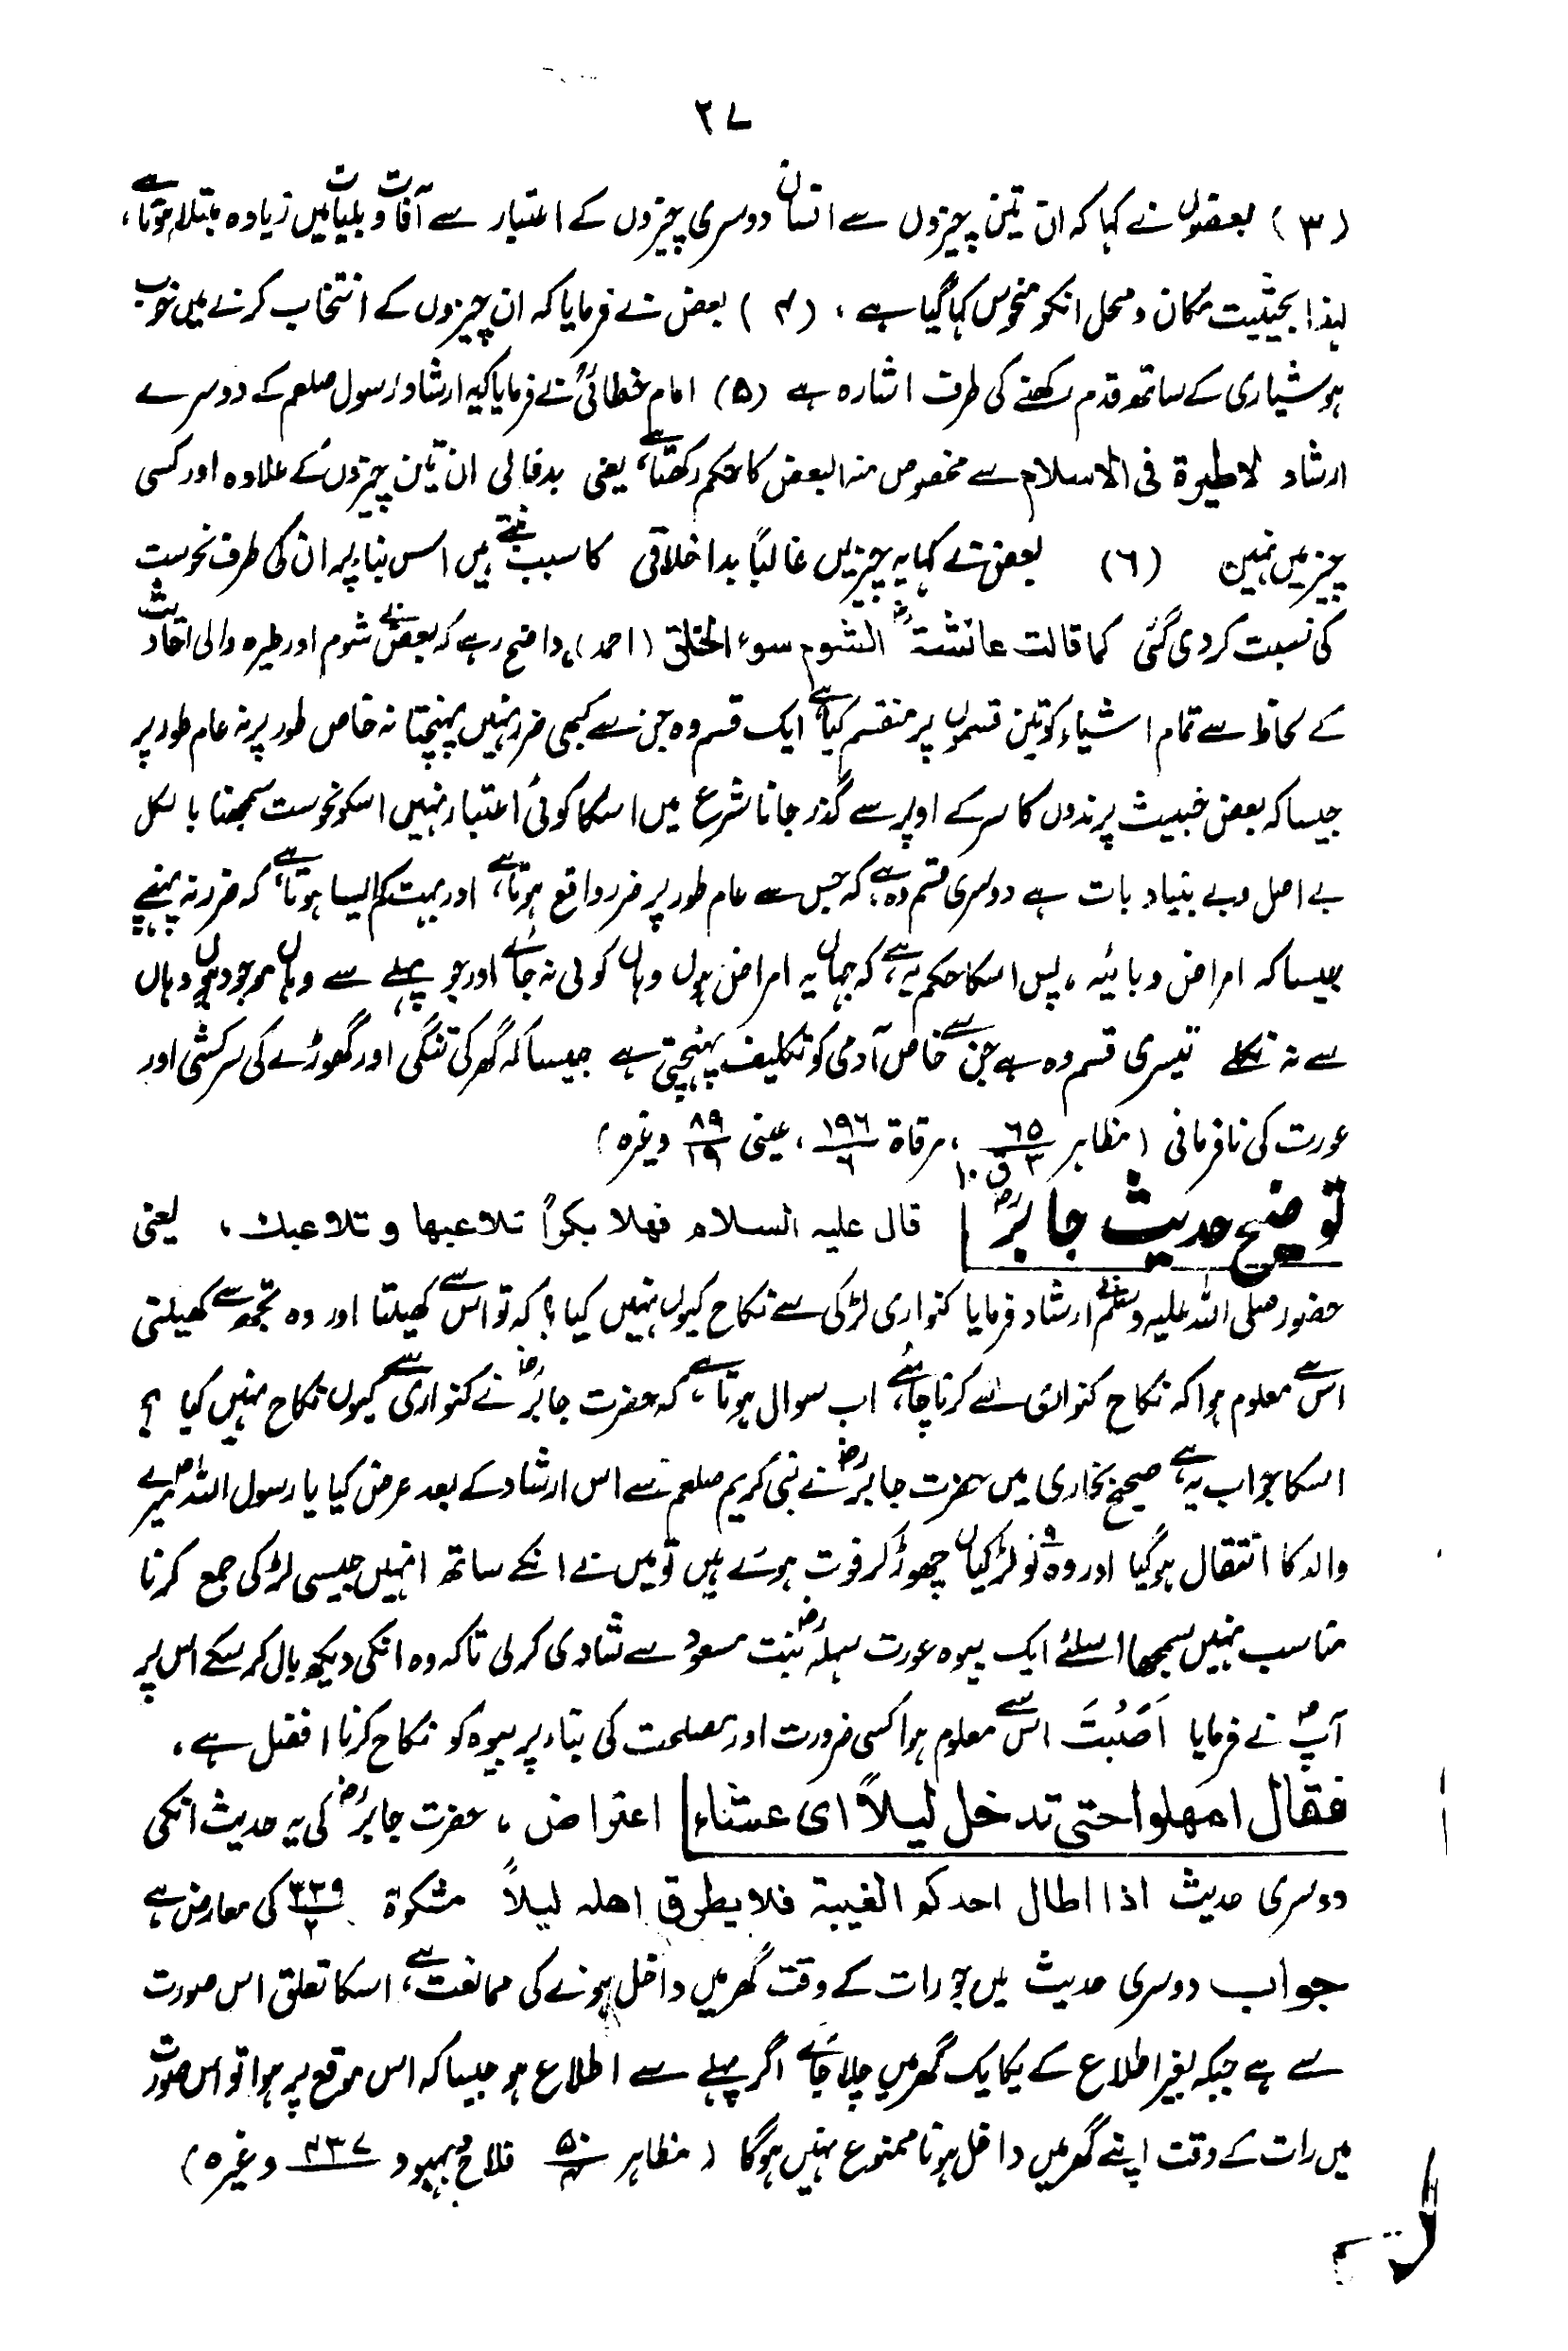 ۲۷
(۳) بعضوں نے کہا کہ ان تین چیزوں سے انسان دوسری چیزوں کے اعتبار سے آفات و بلیات میں زیادہ مبتلا ہوتا ہے،
لہذا بحیثیت مکان و محل انکو منحوس کہا گیا ہے، (۴) بعض نے فرمایا کہ ان چیزوں کے انتخاب کرنے میں خوب
ہوشیاری کے ساتھ قدم رکھنے کی طرف اشارہ ہے (۵) امام خطابیؒ نے فرمایا کہ یہ ارشاد رسول صلعم کے دوسرے
ارشاد لاطیرة فی الاسلام سے مخصوص منہ البعض کا حکم رکھتا ہے، یعنی بدفالی ان تین چیزوں کے علاوہ اور کسی
چیز میں نہیں (٦) بعض نے کہا یہ چیزیں غالباً بداخلاقی کا سبب بنتے ہیں اس بناء پر ان کی طرف نحوست
کی نسبت کردی گئی کما قالت عائشةؓ الشوم سوء الخلق (احمد)، واضح رہے کہ بعض نے شوم اور طیرہ والی احادیث
کے لحاظ سے تمام اشیاء کو تین قسموں پر منقسم کیا ہے ایک قسم وہ جن سے کبھی ضرر نہیں پہنچتا نہ خاص طور پر نہ عام طور پر
جیسا کہ بعض خبیث پرندوں کا سر کے اوپر سے گذر جانا شرع میں اسکا کوئی اعتبار نہیں اسکو نحوست سمجھنا بالکل
بے اصل و بے بنیاد بات ہے دوسری قسم وہ ہے کہ جس سے عام طور پر ضرر واقع ہوتا ہے، اور بہت کم ایسا ہوتا ہے کہ ضرر نہ پہنچے
جیسا کہ امراض وبائیہ، پس اسکا حکم یہ ہے کہ جہاں یہ امراض ہوں وہاں کوئی نہ جائے اور جو پہلے سے وہاں موجود ہوں وہاں
سے نہ نکلے تیسری قسم وہ ہے جن سے خاص آدمی کو تکلیف پہنچتی ہے جیسا کہ گھر کی تنگی اور گھوڑے کی سرکشی اور
عورت کی نافرمانی (مظاہر ٦٥/٣ ق ١٠، مرقاة ١٩٦/٦، عینی ٨٩/١٩ وغیرہ)
توضیح حدیث جابرؓ قال علیہ السلام فهلا بکراً تلاعبها و تلاعبك، یعنی
حضور صلی اللہ علیہ وسلم نے ارشاد فرمایا کنواری لڑکی سے نکاح کیوں نہیں کیا؟ کہ تو اس سے کھیلتا اور وہ تجھ سے کھیلتی
اس سے معلوم ہوا کہ نکاح کنواری سے کرنا چاہئے، اب سوال ہوتا ہے کہ حضرت جابرؓ نے کنواری سے کیوں نکاح نہیں کیا ؟
اسکا جواب یہ ہے صحیح بخاری میں حضرت جابرؓ نے نبی کریم صلعم سے اس ارشاد کے بعد عرض کیا یا رسول اللہؐ میرے
والد کا انتقال ہوگیا اور وہ نو ۹ لڑکیاں چھوڑ کر فوت ہوئے ہیں تو میں نے انکے ساتھ انہیں جیسی لڑکی جمع کرنا
مناسب نہیں سمجھا اسلئے ایک بیوہ عورت سہلہؓ بنت مسعود سے شادی کرلی تاکہ وہ انکی دیکھ بال کرسکے اس پر
آپؐ نے فرمایا اَصَبْتَ اس سے معلوم ہوا کسی ضرورت اور مصلحت کی بناء پر بیوہ کو نکاح کرنا افضل ہے،
فقال امهلوا حتی تدخل لیلاً ای عشاء اعتراض، حضرت جابرؓ کی یہ حدیث انکی
دوسری حدیث اذا اطال احدکم الغیبة فلا یطرق اهله لیلاً مشکوة ٣٣٩/٢ کی معارض ہے
جواب دوسری حدیث میں جو رات کے وقت گھر میں داخل ہونے کی ممانعت ہے، اسکا تعلق اس صورت
سے ہے جبکہ بغیر اطلاع کے یکایک گھر میں چلا جائے اگر پہلے سے اطلاع ہو جیسا کہ اس موقع پر ہوا تو اس صورت
میں رات کے وقت اپنے گھر میں داخل ہونا ممنوع نہیں ہوگا (مظاہر ٥٠/٤ فلاح بہبود ٤٣٧ وغیرہ)